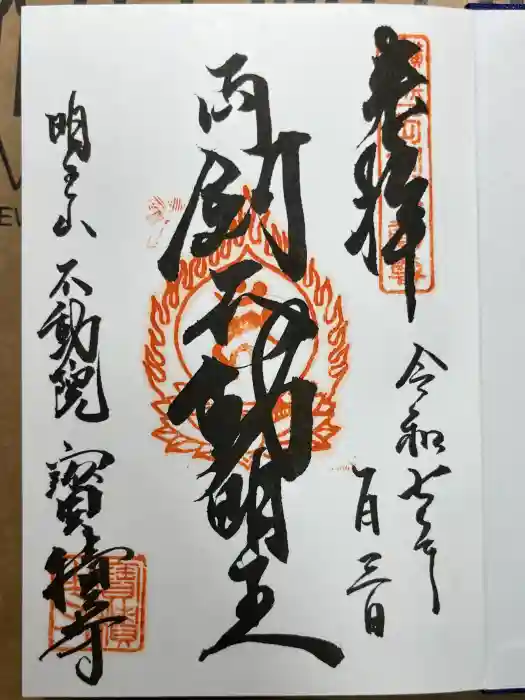 奉拝
令和七年
一月三日
両剣不動明王
明王山 不動院 寳積寺